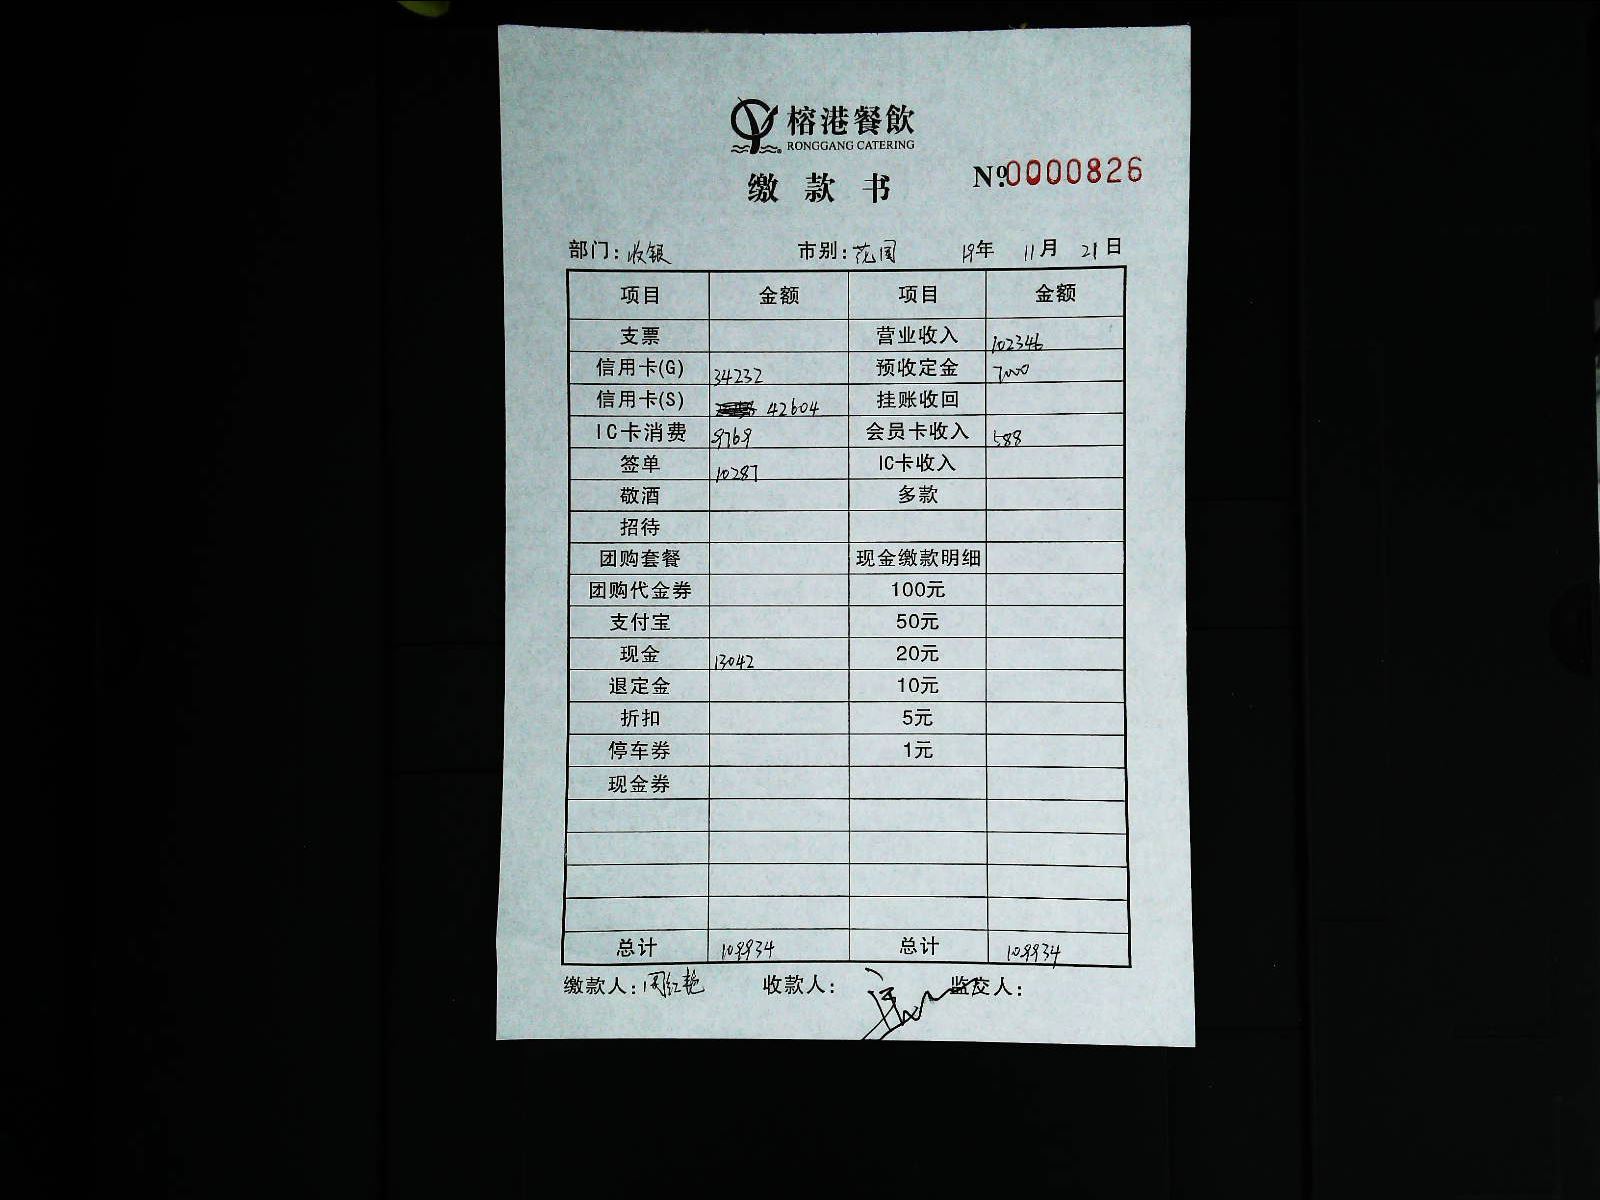 榕港餐飲
RONGGANG CATERING
缴款书 №0000826
部门：收银 市别：花园 19年 11月 21日
项目 金额 项目 金额
支票 营业收入 102346
信用卡(G) 34232 预收定金 7000
信用卡(S) 42604 挂账收回
IC卡消费 9769 会员卡收入 588
签单 10287 IC卡收入
敬酒 多款
招待
团购套餐 现金缴款明细
团购代金券 100元
支付宝 50元
现金 13042 20元
退定金 10元
折扣 5元
停车券 1元
现金券
总计 109934 总计 109934
缴款人：周红艳 收款人： 监交人：